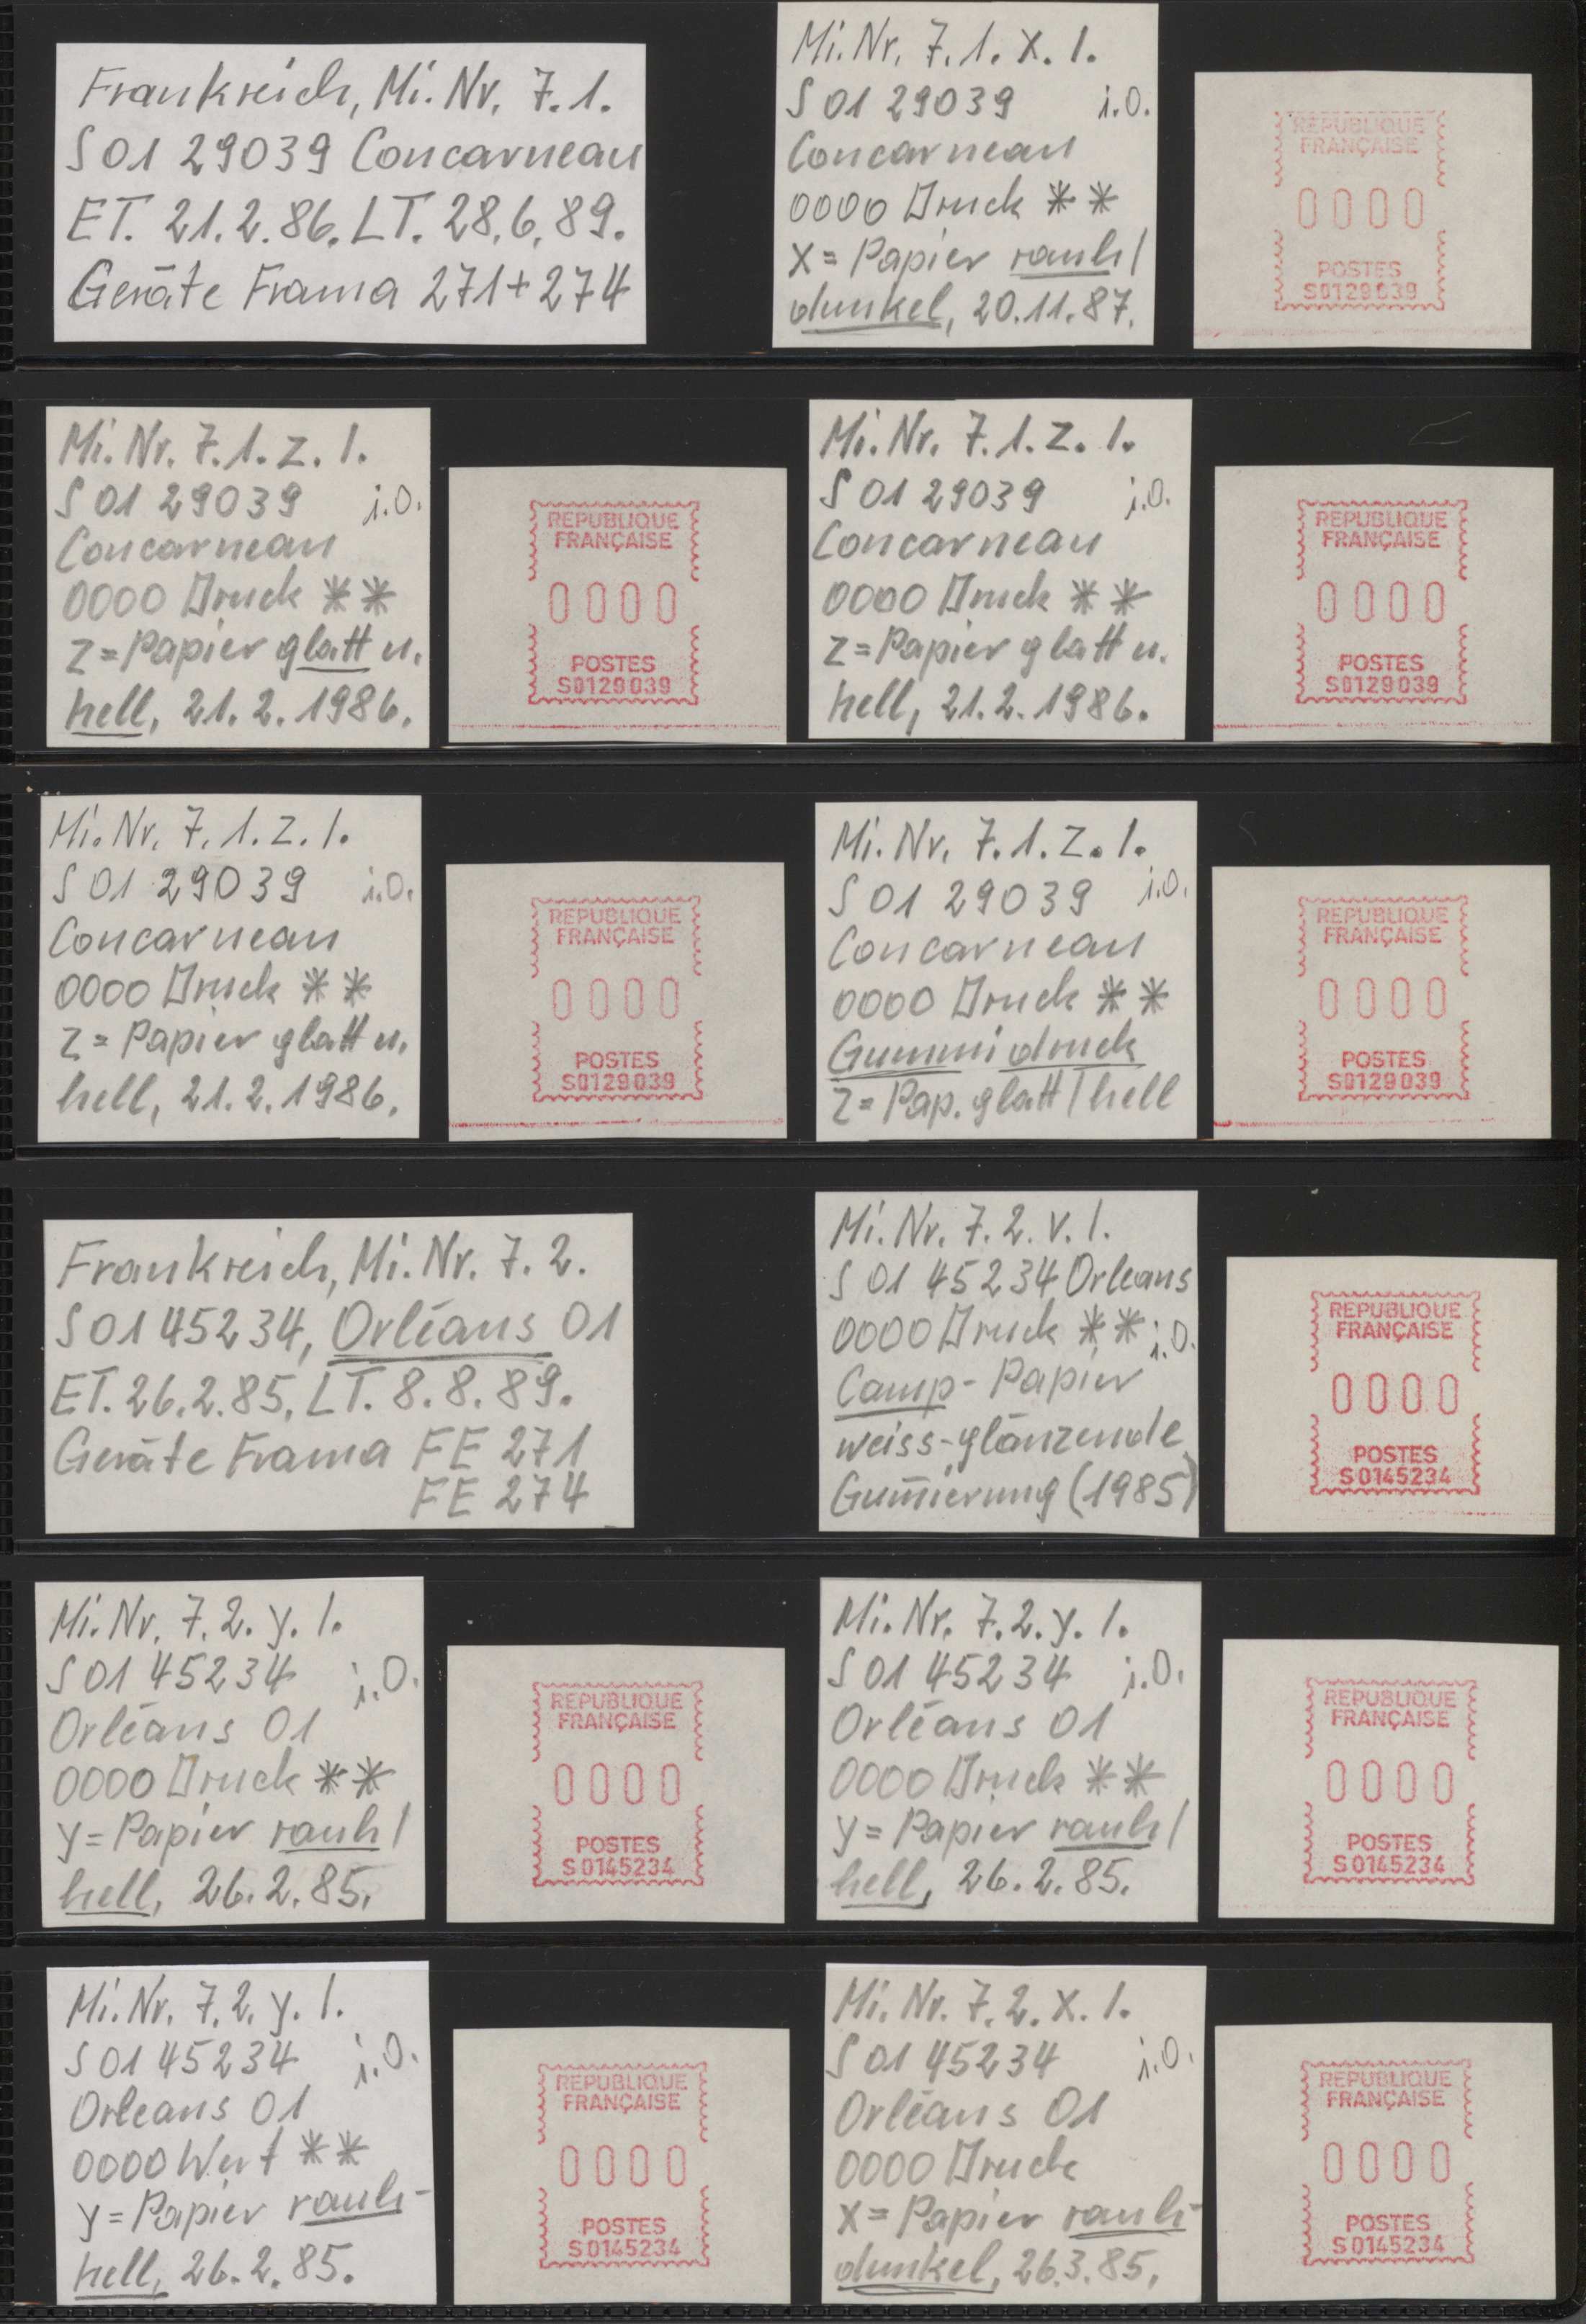 Frankreich, Mi. Nr. 7.1.
S 01 29039 Concarneau
ET. 21.2.86. LT. 28.6.89.
Geräte Frama 271+274
Mi. Nr. 7.1. x. 1.
S 01 29039 i.O.
Concarneau
0000 Druck **
x = Papier rauh/
dunkel, 20.11.87.
REPUBLIQUE
FRANÇAISE
0000
POSTES
S0129039
Mi. Nr. 7.1. z. 1.
S 01 29039 i.O.
Concarneau
0000 Druck **
z = Papier glatt u.
hell, 21.2.1986.
REPUBLIQUE
FRANÇAISE
0000
POSTES
S0129039
Mi. Nr. 7.1. z. 1.
S 01 29039 i.O.
Concarneau
0000 Druck **
z = Papier glatt u.
hell, 21.2.1986.
REPUBLIQUE
FRANÇAISE
0000
POSTES
S0129039
Mi. Nr. 7.1. z. 1.
S 01 29039 i.O.
Concarneau
0000 Druck **
z = Papier glatt u.
hell, 21.2.1986.
REPUBLIQUE
FRANÇAISE
0000
POSTES
S0129039
Mi. Nr. 7.1. z. 1.
S 01 29039 i.O.
Concarneau
0000 Druck **
Gummidruck
z = Pap. glatt/hell
REPUBLIQUE
FRANÇAISE
0000
POSTES
S0129039
Frankreich, Mi. Nr. 7.2.
S 01 45234, Orléans 01
ET. 26.2.85. LT. 8.8.89.
Geräte Frama FE 271
FE 274
Mi. Nr. 7.2. v. 1.
S 01 45234 Orleans
0000 Druck ** i.O.
Camp-Papier
weiss-glänzende
Gum̄ierung (1985)
REPUBLIQUE
FRANÇAISE
0000
POSTES
S0145234
Mi. Nr. 7.2. y. 1.
S 01 45234 i.O.
Orléans 01
0000 Druck **
y = Papier rauh/
hell, 26.2.85.
REPUBLIQUE
FRANÇAISE
0000
POSTES
S0145234
Mi. Nr. 7.2. y. 1.
S 01 45234 i.O.
Orléans 01
0000 Druck **
y = Papier rauh/
hell, 26.2.85.
REPUBLIQUE
FRANÇAISE
0000
POSTES
S0145234
Mi. Nr. 7.2. y. 1.
S 01 45234 i.O.
Orleans 01
0000 Wert **
y = Papier rauh-
hell, 26.2.85.
REPUBLIQUE
FRANÇAISE
0000
POSTES
S0145234
Mi. Nr. 7.2. x. 1.
S 01 45234 i.O.
Orléans 01
0000 Druck
x = Papier rauh-
dunkel, 26.3.85.
REPUBLIQUE
FRANÇAISE
0000
POSTES
S0145234